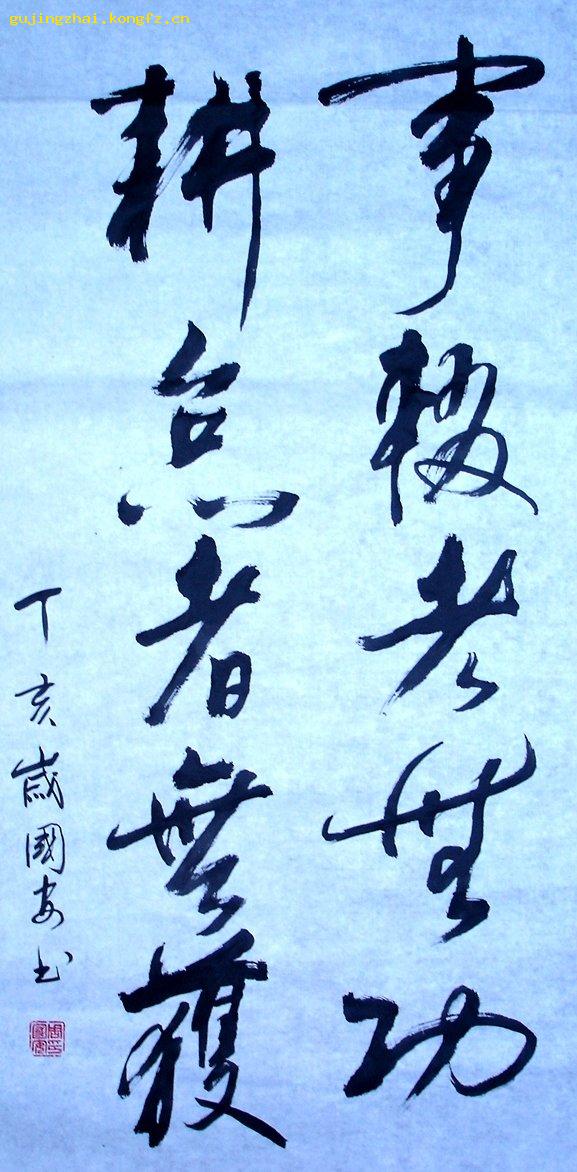 gujingzhai.kongfz.cn
事輟者無功
耕怠者無獲
丁亥歲國安书